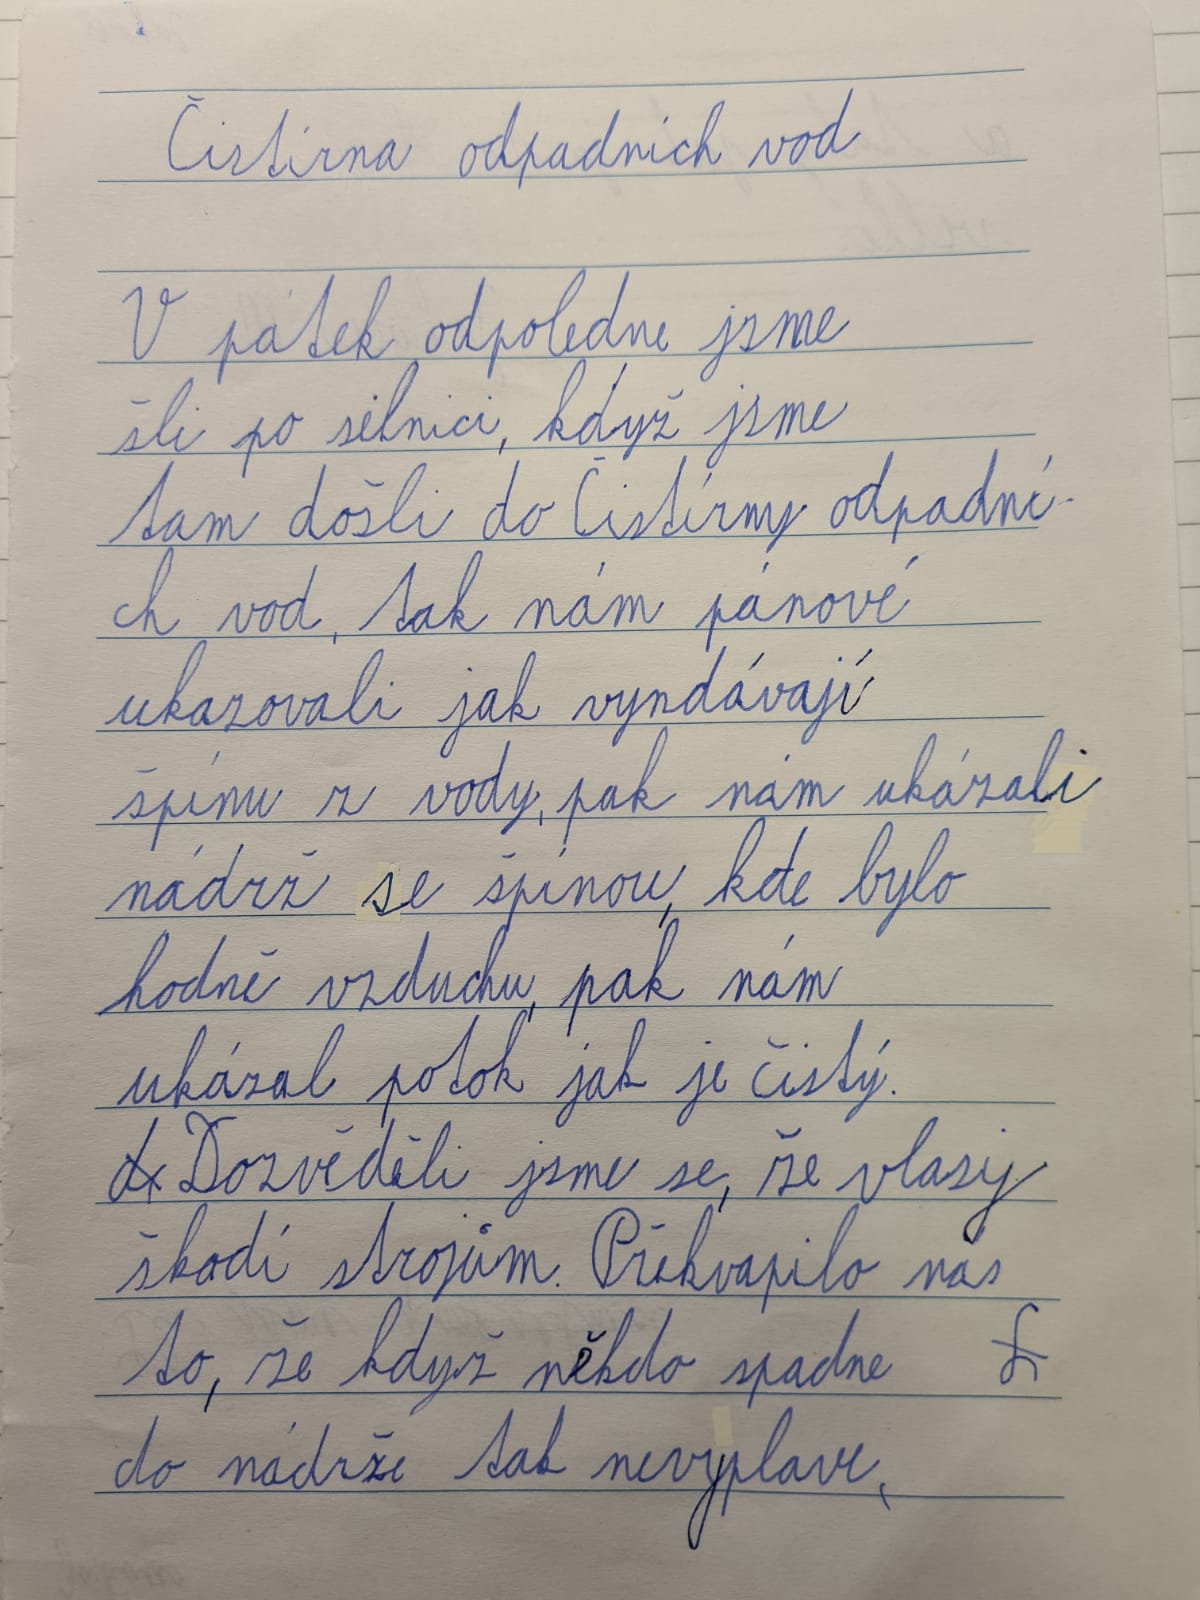 Čistírna odpadních vod
V pátek odpoledne jsme
šli po silnici, když jsme
tam došli do Čistírny odpadní-
ch vod, tak nám pánové
ukazovali jak vyndávají
špínu z vody, pak nám ukázali
nádrž se špínou, kde bylo
hodně vzduchu, pak nám
ukázal potok jak je čistý.
Dozvěděli jsme se, že vlasy
škodí strojům. Překvapilo nás
to, že když někdo spadne
do nádrže tak nevyplave,